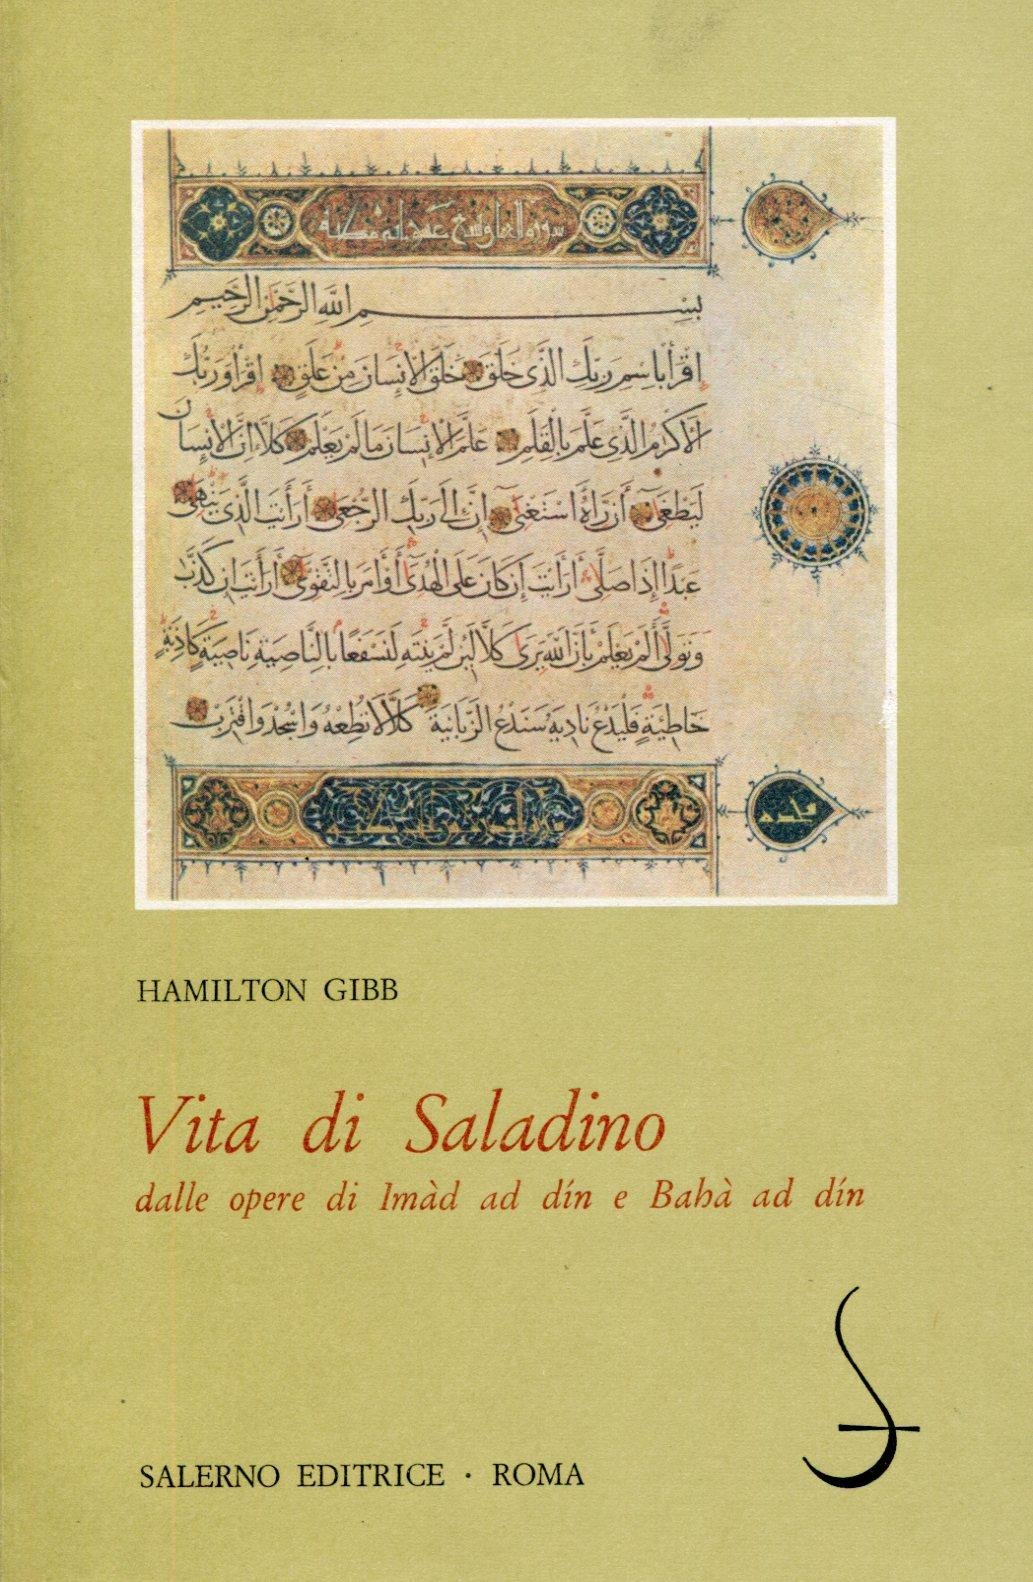 بِسْمِ اللَّهِ الرَّحْمَنِ الرَّحِيمِ
اِقْرَأْ بِاسْمِ رَبِّكَ الَّذِي خَلَقَ خَلَقَ الْإِنْسَانَ مِنْ عَلَقٍ اِقْرَأْ وَرَبُّكَ
الْأَكْرَمُ الَّذِي عَلَّمَ بِالْقَلَمِ عَلَّمَ الْإِنْسَانَ مَا لَمْ يَعْلَمْ كَلَّا إِنَّ الْإِنْسَانَ
لَيَطْغَى أَنْ رَآهُ اسْتَغْنَى إِنَّ إِلَى رَبِّكَ الرُّجْعَى أَرَأَيْتَ الَّذِي يَنْهَى
عَبْدًا إِذَا صَلَّى أَرَأَيْتَ إِنْ كَانَ عَلَى الْهُدَى أَوْ أَمَرَ بِالتَّقْوَى أَرَأَيْتَ إِنْ كَذَّبَ
وَتَوَلَّى أَلَمْ يَعْلَمْ بِأَنَّ اللَّهَ يَرَى كَلَّا لَئِنْ لَمْ يَنْتَهِ لَنَسْفَعًا بِالنَّاصِيَةِ نَاصِيَةٍ كَاذِبَةٍ
خَاطِئَةٍ فَلْيَدْعُ نَادِيَهُ سَنَدْعُ الزَّبَانِيَةَ كَلَّا لَا تُطِعْهُ وَاسْجُدْ وَاقْتَرِبْ
HAMILTON GIBB
Vita di Saladino
dalle opere di Imàd ad dín e Bahà ad dín
SALERNO EDITRICE · ROMA